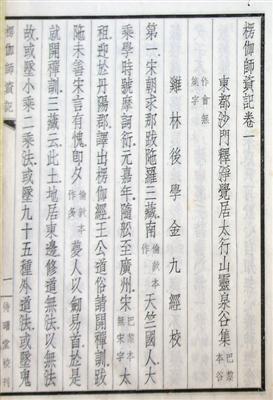 楞伽師資記卷一
東都沙門釋淨覺居太行山靈泉谷集
巴黎本谷
作會無
集字
雞林後學金九經校
第一宋朝求那跋陀羅三藏南天竺國人大
倫敦本
作
乘學時號摩訶衍元嘉年隨舩至廣州宋太
巴黎本
無宋字
祖迎於丹陽郡譯出楞伽經王公道俗請開禪訓跋
陀未善宋言有愧即夕夢人以劒易首於是
倫敦本
作多
就開禪訓三藏云此土地居東邊修道無法以無法
故或墜小乘二乘法或墜九十五種外道法或墜鬼
楞伽師資記
一
待曙堂校刊